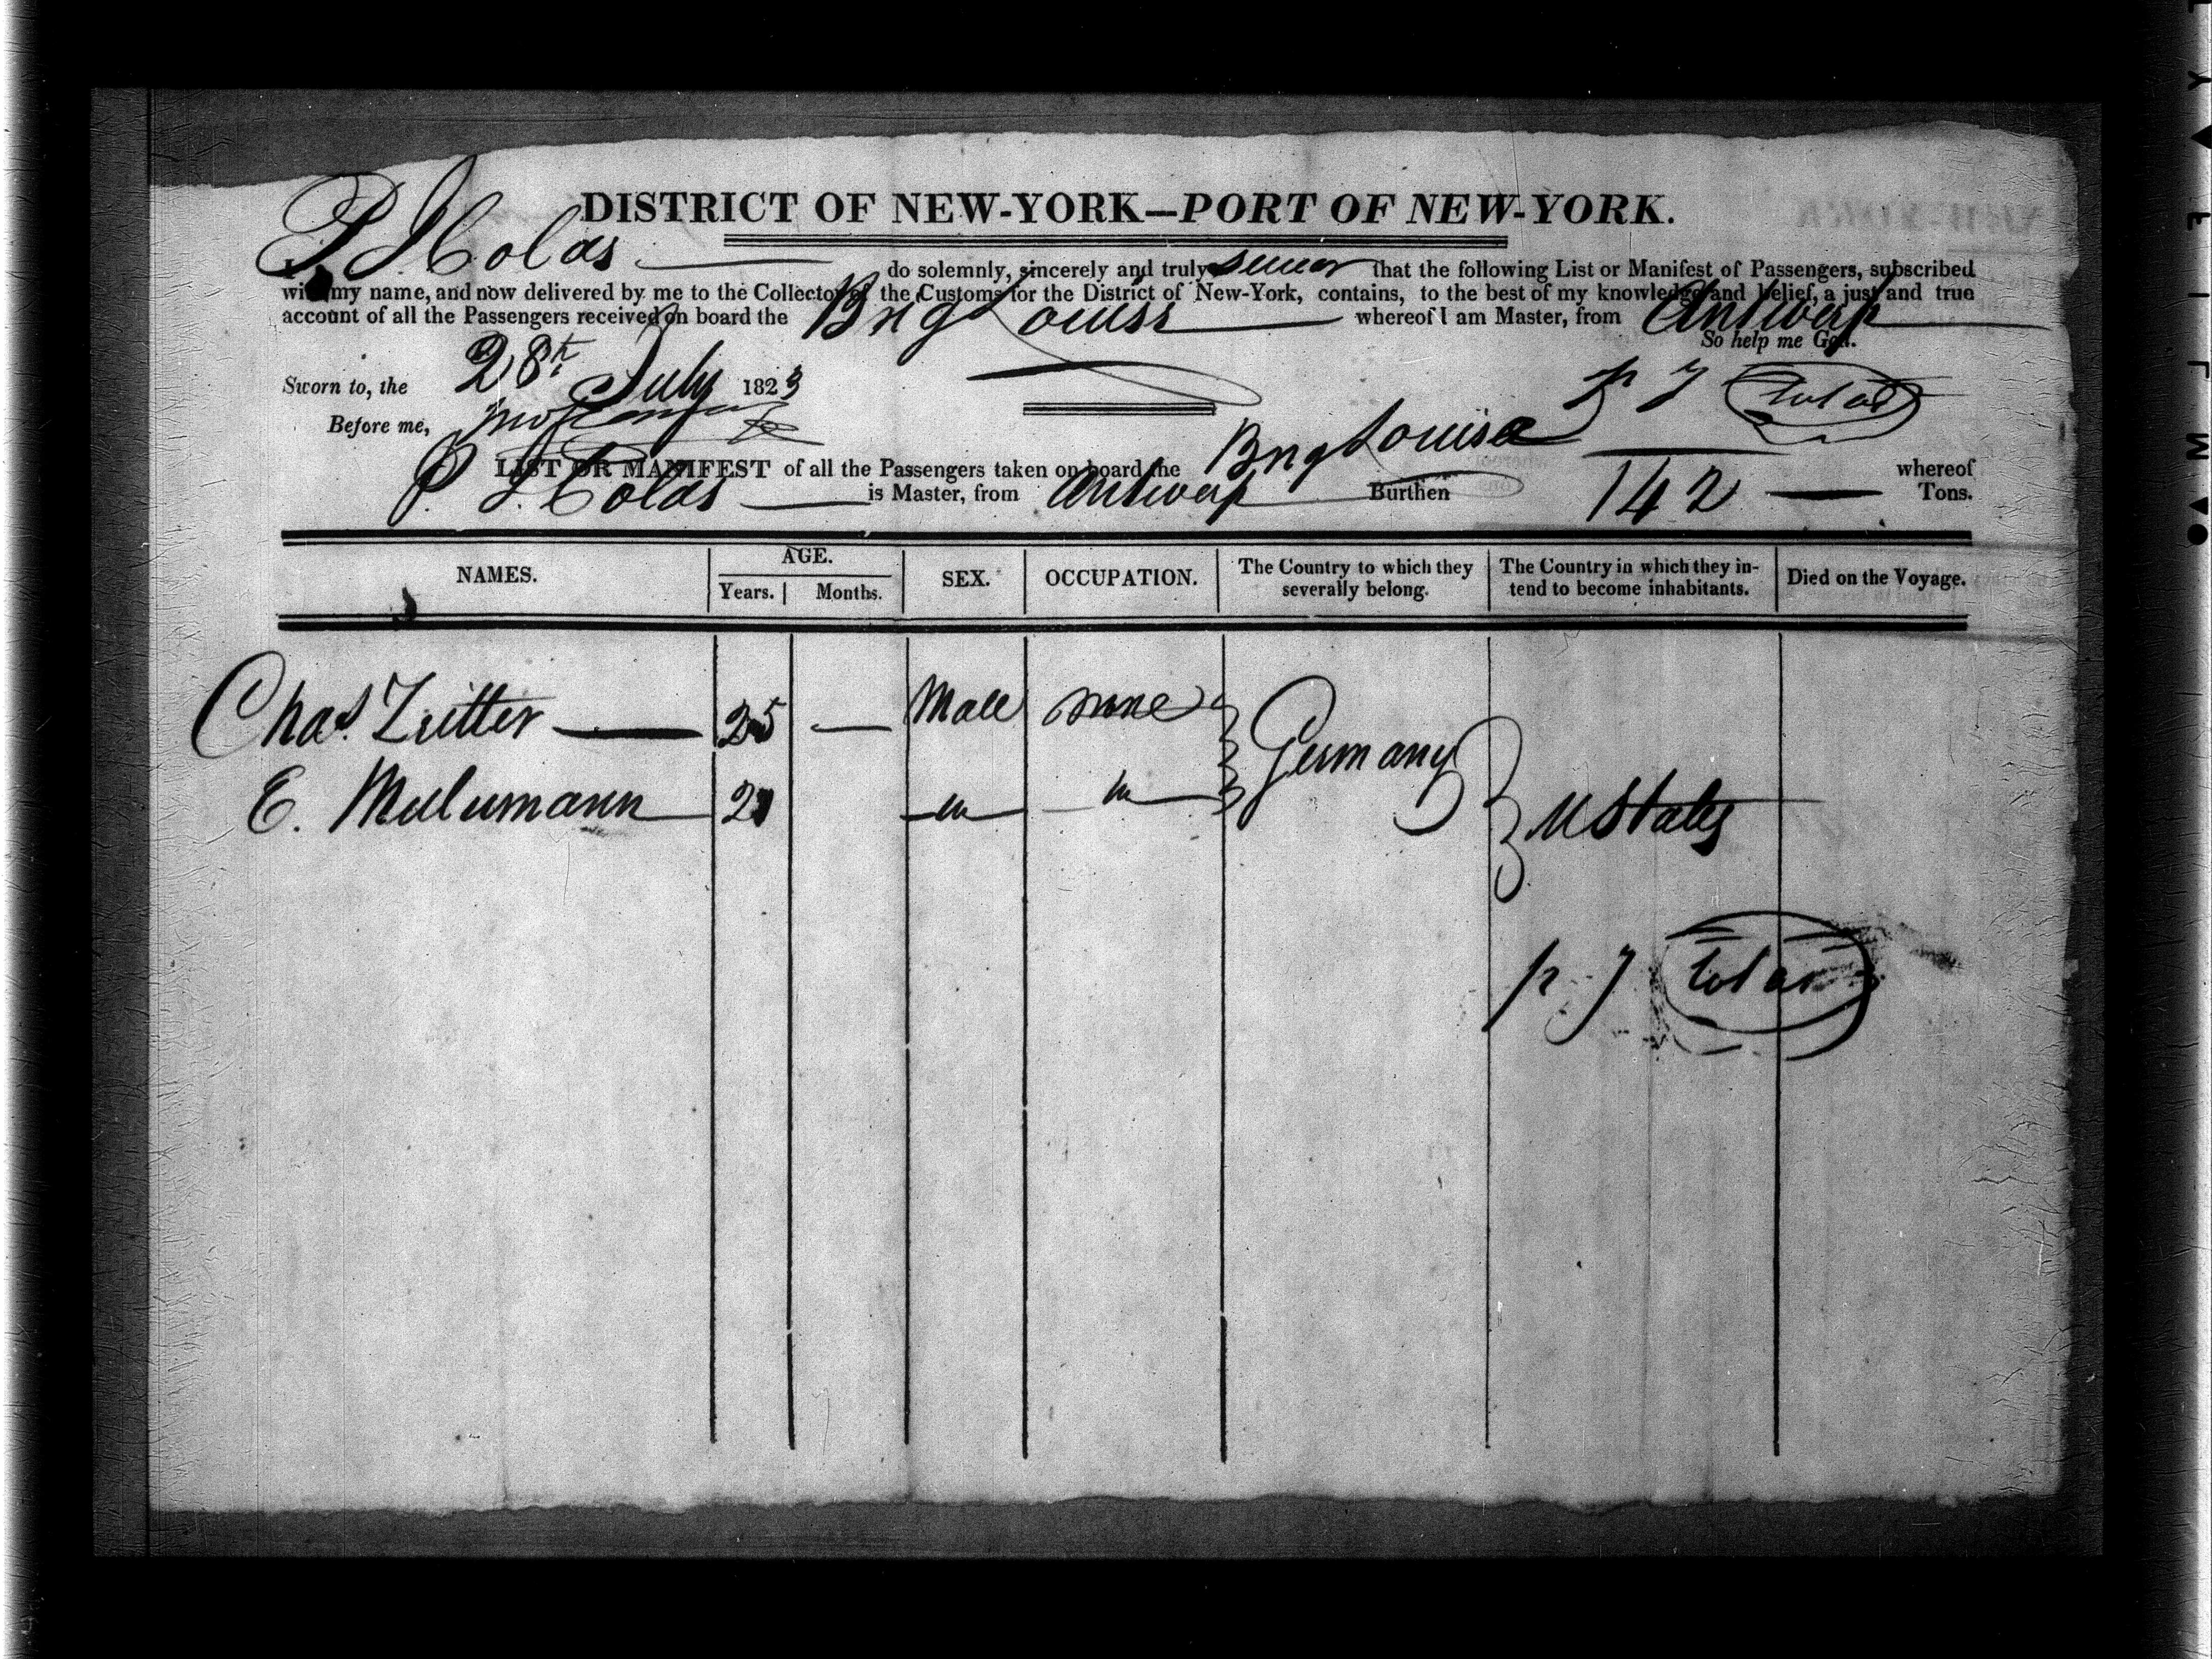 DISTRICT OF NEW-YORK—PORT OF NEW-YORK.
I, P. J. Colas do solemnly, sincerely and truly swear that the following List or Manifest of Passengers, subscribed
with my name, and now delivered by me to the Collector of the Customs for the District of New-York, contains, to the best of my knowledge and belief, a just and true
account of all the Passengers received on board the Brig Louisa whereof I am Master, from Antwerp
So help me God.
Sworn to, the 28th July 1823
Before me,
LIST OR MANIFEST of all the Passengers taken on board the Brig Louisa whereof
P. J. Colas is Master, from Antwerp Burthen 142 Tons.
NAMES. AGE. Years. Months. SEX. OCCUPATION. The Country to which they severally belong. The Country in which they intend to become inhabitants. Died on the Voyage.
Chas. Zritter 25 — Male none Germany
E. Mulumann 2 U States